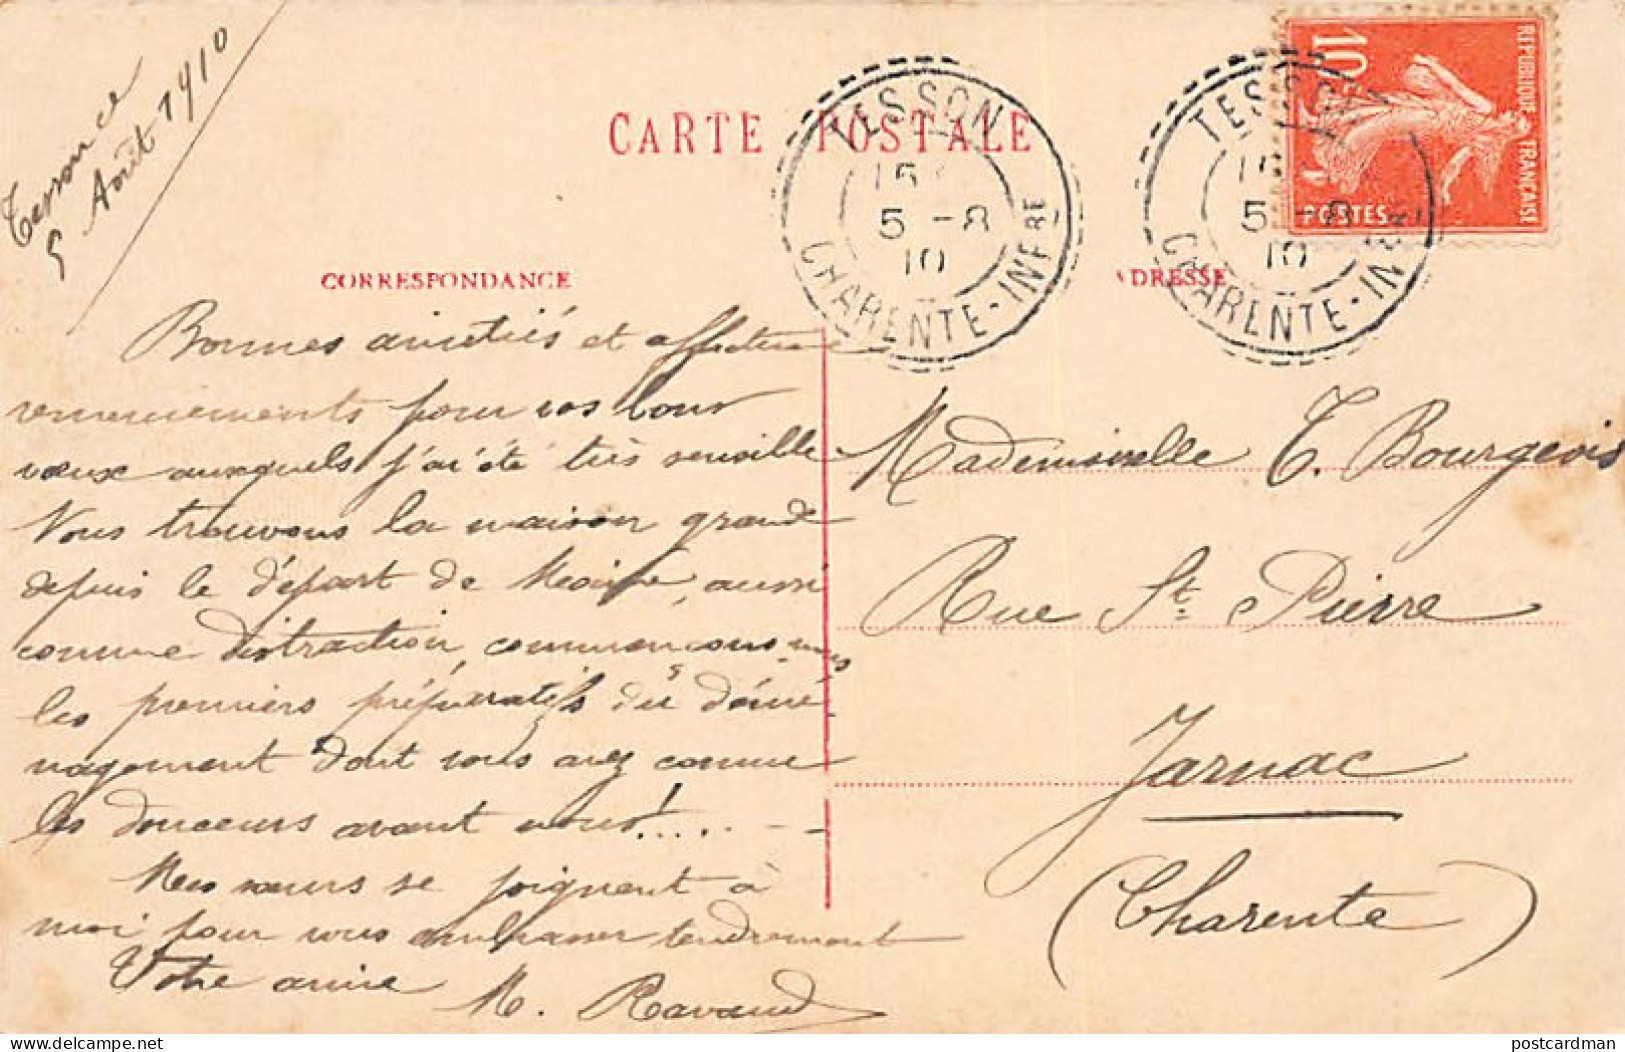 5 Août 1910
CARTE POSTALE
TESSON
5 - 8
10
CHARENTE-INFRE
TESSON
5 - 8
10
CHARENTE-INFRE
10
REPUBLIQUE FRANÇAISE
POSTES
CORRESPONDANCE
ADRESSE
Bonnes amitiés et affectueux
remerciements pour vos bons
vœux auxquels j'ai été très sensible
Nous trouvons la maison grande
depuis le départ de aussi
comme distraction, commencons-nous
les premiers préparatifs du démé-
nagement dont vous avez connu
les douceurs avant nous!.....
Mes sœurs se joignent à
moi pour vous embrasser tendrement
Votre amie
M. Ravaud
Mademoiselle T. Bourgeois
Rue St. Pierre
Jarnac
(Charente)
postcardman